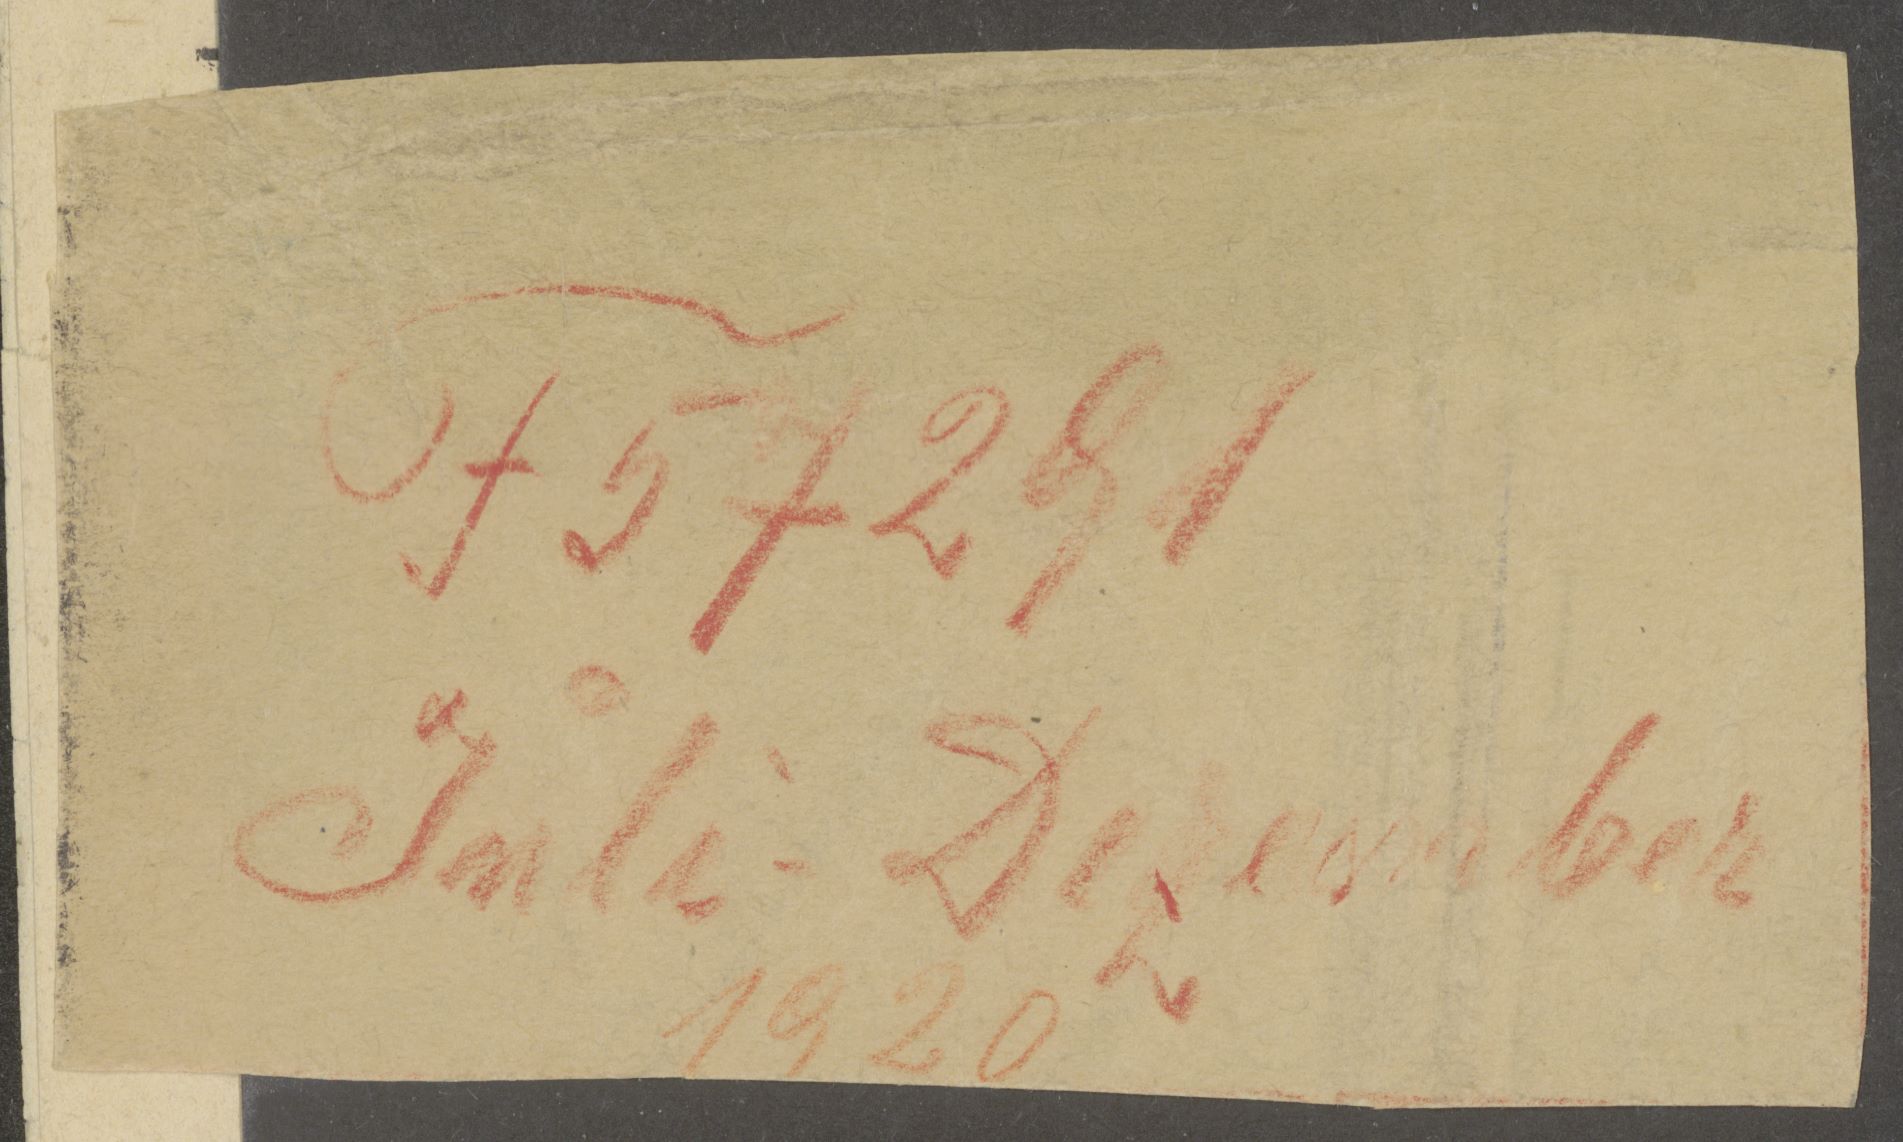 F 57291
Juli - Dezember
1920